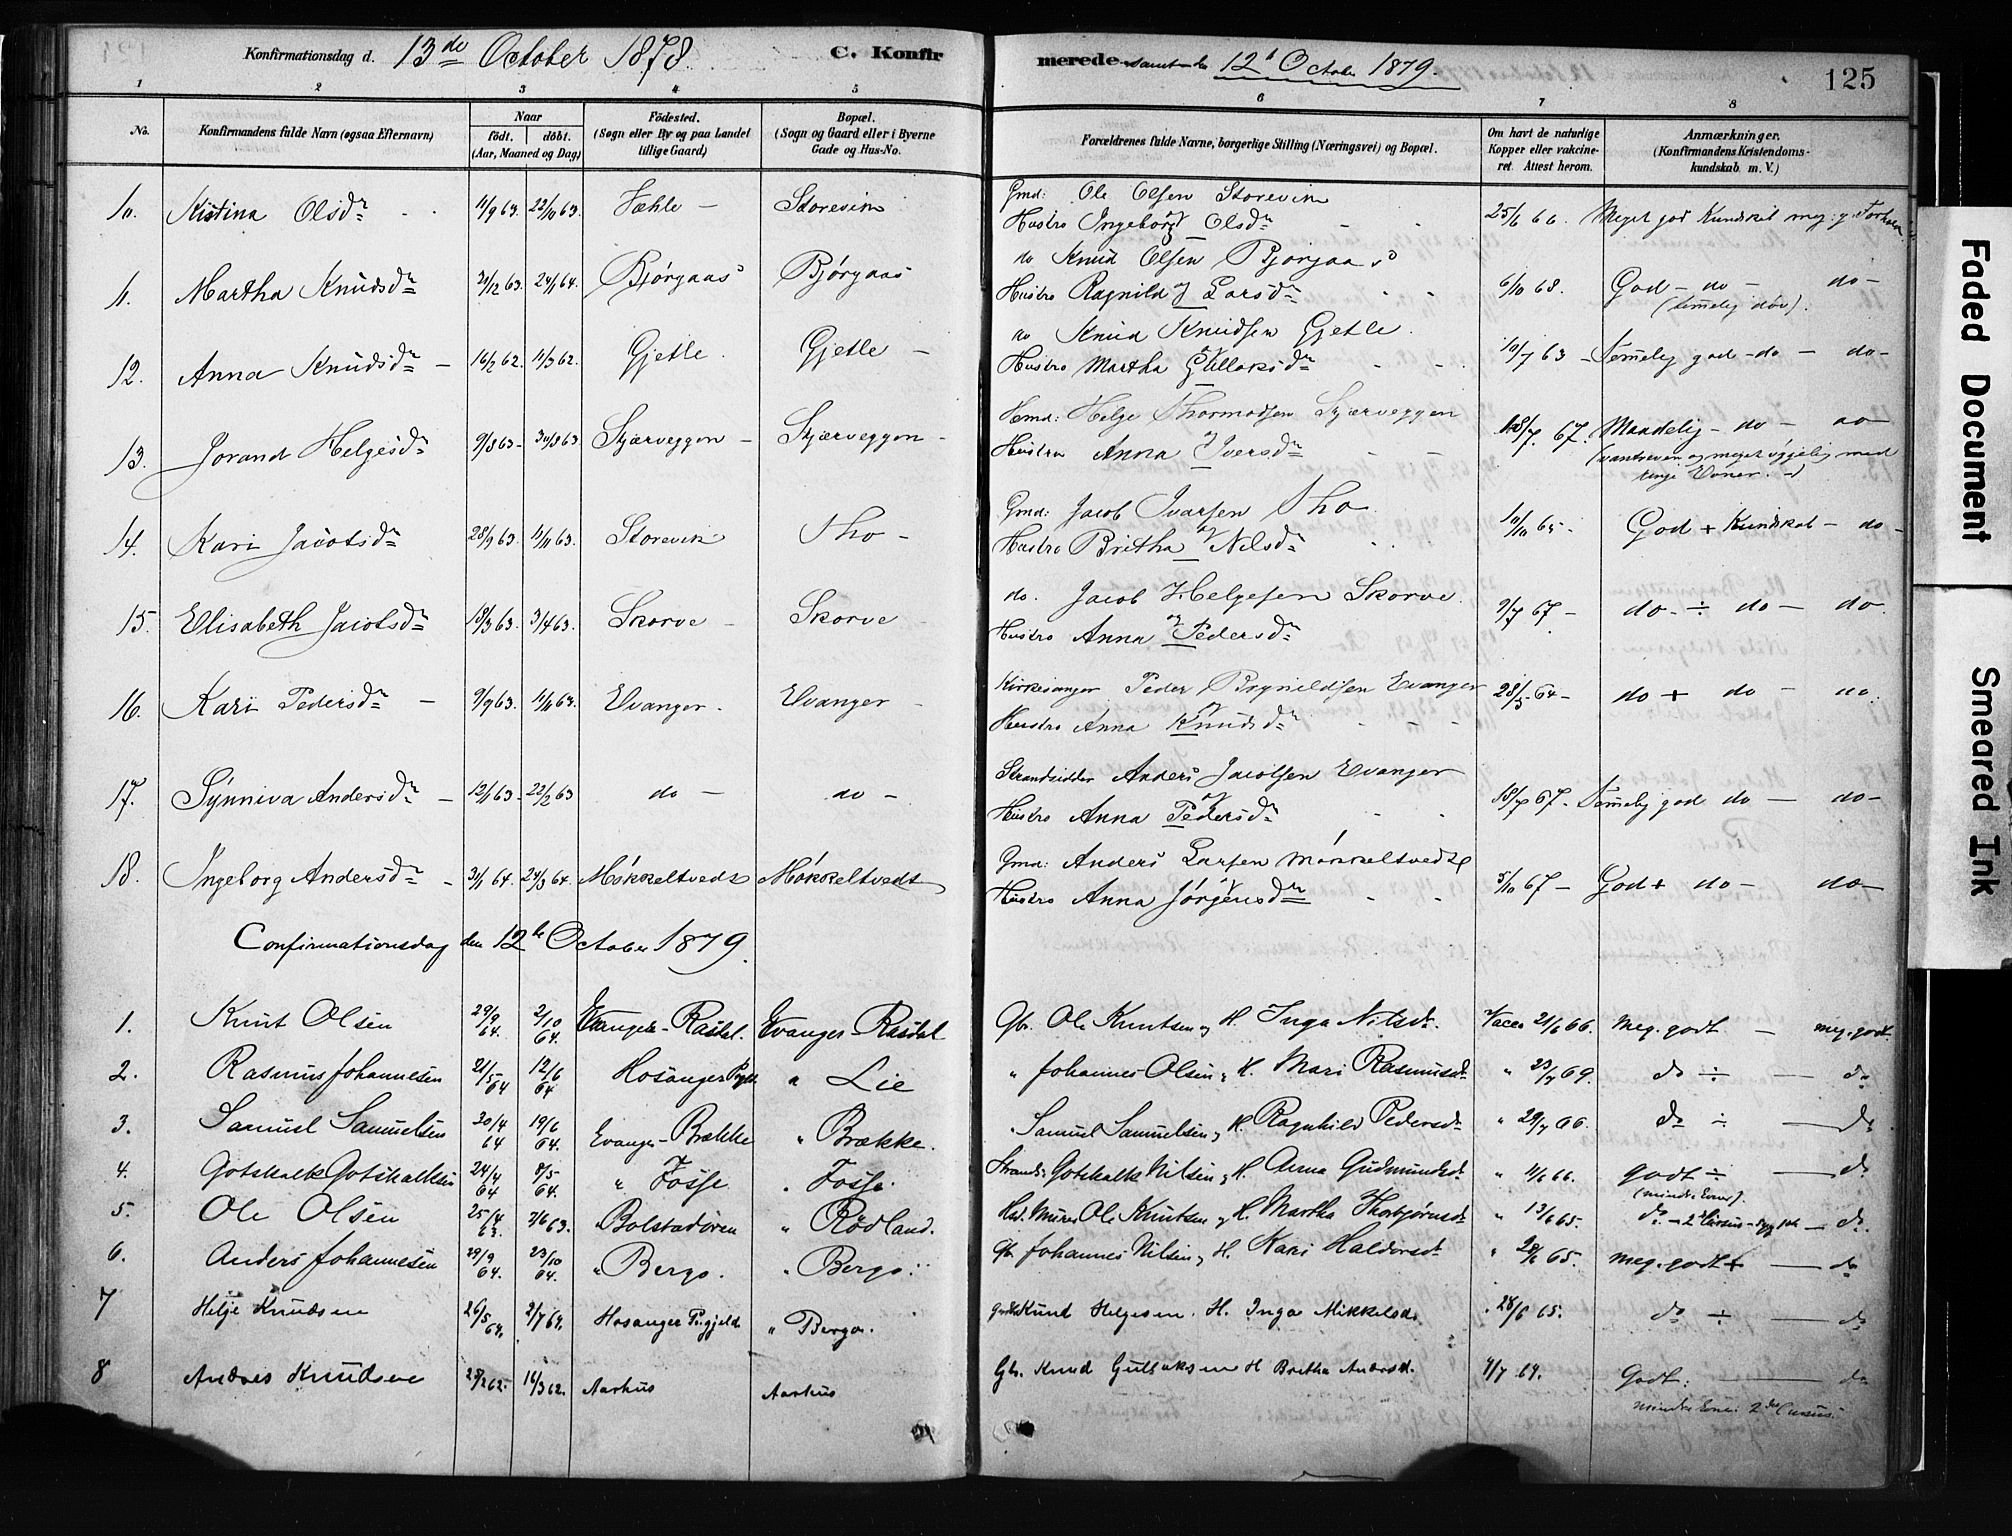 Konfirmationsdag d. 13de October 1878. C. Konfir
merede samt den 12te October 1879.
125
1 2 3 4 5 6 7 8
No. Konfirmandens fulde Navn (ogsaa Efternavn) Naar født. døbt. (Aar, Maaned og Dag) Fødested. (Sogn eller By og paa Landet tillige Gaard) Bopæl. (Sogn og Gaard eller i Byerne Gade og Hus-No.
Forældrenes fulde Navne, borgerlige Stilling (Næringsvei) og Bopæl. Om havt de naturlige Kopper eller vakcineret. Attest herom. Anmærkninger. (Konfirmandens Kristendomskundskab m. V.)
10. Kistina Olsdr 11/9 63. 22/10 63. Fæhle - Storevik Gmd: Ole Olsen Storevik
Hustro Ingeborg Olsdr 25/6 66 Meget god Kundskab meg: g. Forhold
11. Martha Knudsdr 31/12 63. 24/1 64. Bjørgaas Bjørgaas do Knud Olsen Bjørgaas
Hustro Ragnild Larsdr 6/10 68. God - do - do -
(temelig døv).
12. Anna Knudsdr - 16/2 62. 11/3 62. Gjetle. Gjetle - do Knud Knudsen Gjetle.
Hustro Martha Gulleksdr 10/7 63 - Temelig god - do - do -
13. Jorand Helgesdr 9/8 63 - 30/8 63 Skjærveggen - Skjærveggen - Hmd: Helge Thormodsen Skjærveggen
Hustro Anna Iversdr 18/7 67. Maadelig - do - do
(vantreven og meget sygelig med
ringe Evner. -)
14. Kari Jacobsdr 28/9 63. 11/11 63. Storevik Tho - Gmd: Jacob Ivarsen Tho
Hustro Britha Nilsdr 10/10 65 - God + Kundskab - do -
15. Elisabeth Jacobsdr 18/3 63. 3/4 63. Skorve - Skorve do. Jacob Helgesen Skorve.
Hustro Anna Pedersdr 9/7 67 - do - ÷ do - do
16. Kari Pedersdr - 9/9 63. 11/11 63. Evanger. Evanger - Kirkesanger Peder Brynildsen Evanger
Hustro Anna Knudsdr 28/5 64 - do + do - do.
17. Synniva Andersdr - 12/1 63 - 22/2 63 do - do - Strandsidder Anders Jacobsen Evanger
Hustro Anna Pedersdr 18/7 67 - Temelig god do - do -
18. Ingeborg Andersdr - 31/1 64. 24/3 64. Møkkeltvedt Møkkeltvedt Gmd: Anders Larsen Møkkeltvedt
Hustro Anna Jørgensdr 5/10 67 - God + do - do -
Confirmationsdag den 12te October 1879.
1. Knut Olsen 29/9 64. 2/10 64. Evanger - Rasdal. Evanger - Rasdal Gbr. Ole Knutsen og H. Inga Nilsdr. Vacc. 21/6 66. meg. godt - meg. godt.
2. Rasmus Johannesen 21/5 64 12/6 64 Hosanger Prgj. " Lie " Johannes Olsen og H. Mari Rasmusdr " 23/7 69. do ÷ - do
3. Samuel Samuelsen 30/4 64 19/6 64. Evanger - Brække " Brække. Samuel Samuelsen og H. Ragnhild Pedersdr " 29/7 66. do ÷ - do
4. Gotskalk Gotskalksen 24/4 64 8/5 64. " Fosse " Fosse. Strands. Gotskalk Nilsen og H. Anna Gudmundsd. " 11/6 66. godt ÷ - do
(mindre Evner).
5. Ole Olsen 25/4 63. 7/6 63. " Bolstadøren " Rødland. Hd. Murer Ole Knutsen og H. Martha Thorbjørnsdr " 13/6 65. do - 2. Cursus - - do
6. Anders Johannesen 29/9 64. 23/10 64. " Bergo. " Bergo. Gb. Johannes Nilsen og H. Kari Haldorsdr " 28/6 65. meg. godt + - do
7 Helje Knudsen 26/5 64. 2/7 64. Hosanger Prgjeld " Bergo. Knud Helgesen. H. Inga Mikkelsd. " 28/6 65. do ÷ - do
8 Andres Knudsen 28/2 62. 16/3 62. Aarhus Aarhus Gb. Knud Gulleksen H Britha Andersd. 4/7 64. Godt. - do
mindre Evner 2den Cursus.
Faded Document
Smeared Ink